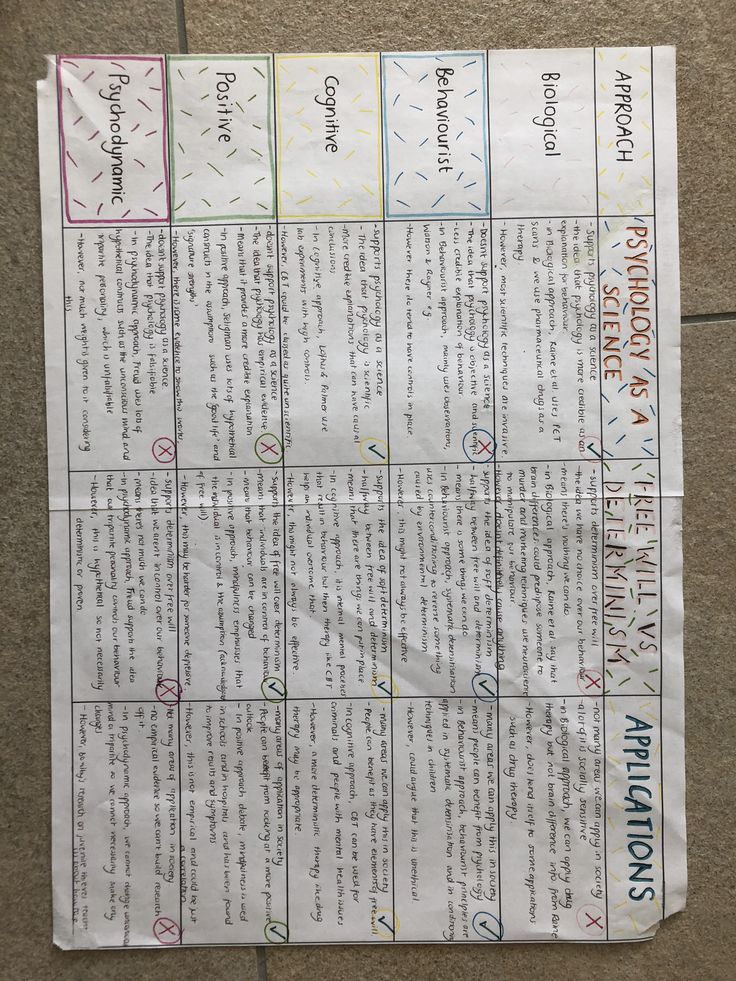 APPROACH
PSYCHOLOGY AS A
SCIENCE
FREE WILL VS
DETERMINISM
APPLICATIONS
Biological
- Supports psychology as a science
- the idea that psychology is more credible as an
explanation for behaviour.
- in Biological approach, Raine et al uses PET
scans & we use pharmaceutical drugs as a
therapy
- However, most scientific techniques are invasive.
- supports determinism over free will
- the idea we have no choice over our behaviour
- means there's nothing we can do.
- in Biological approach, Raine et al say that
brain differences could predispose someone to
murder and marketing techniques use neuroscience
to manipulate our behaviour
However doesn't definitely cause anything
- not many areas we can apply in society
a lot of it is socially sensitive
- in Biological approach, we can apply drug
therapy but not brain difference info from Raine
- However, does lend itself to some applications
such as drug therapy
Behaviourist
- Doesn't support psychology as a science
- The idea that psychology is objective and scientific
- Less credible explanation of behaviour
- in Behaviourist approach, mainly uses observations,
Watson & Rayner e.g.
- However there do tend to have controls in place.
supports the idea of soft determinism
- halfway between free will and determinism
- means there is some things we can do
- in Behaviourist approach, systematic desensitisation
uses counterconditioning to reverse something
caused by environmental determinism
- However, this might not always be effective
- many areas we can apply this in society
- means people can benefit from psychology
- in Behaviourist approach, behaviourist principles are
applied in systematic desensitisation and in conditioning
techniques in children
- However, could argue that this is unethical
Cognitive
- supports psychology as a science
- The idea that psychology is scientific
- more credible explanations that can have causal
conclusions
- In cognitive approach, Loftus & Palmer use
lab experiments with high controls.
- However CBT could be classed as quite unscientific
supports the idea of soft determinism
- halfway between free will and determinism
- means that there are things we can put in place
- In cognitive approach, it is internal mental processes
that result in behaviour but then therapy like CBT
help an individual overcome that
- However, this might not always be effective
- many areas we can apply this in society
- People can benefit as they have elements of free will
In cognitive approach, CBT can be used for
criminals and people with mental health issues
- However, a more deterministic therapy like drug
therapy may be appropriate.
Positive
- doesn't support psychology as a science
- The idea that psychology has empirical evidence
- Means that it provides a more credible explanation
- In positive approach, Seligman uses lots of hypothetical
constructs in the assumptions such as 'the good life' and
'signature strengths'
- However, there is some evidence to show this works
- Supports the idea of free will over determinism
- means that individuals are in control of behaviour
- Mean that behaviour can be changed
- In positive approach, mindfulness emphasises that
the individual is in control & the assumption (acknowledgement
of free will)
- However this may be harder for someone depressive.
- many areas of application in society
- People can benefit from looking at a more positive
outlook
- In positive approach debate, mindfulness is used
in schools and in hospitals and has been found
to improve results and symptoms
- However, this is not empirical and could be just
a correlation
Psychodynamic
- doesnt support psychology as a science
- The idea that psychology is falsifiable
- In psychodynamic approach, Freud uses lots of
hypothetical constructs such as the unconscious mind and
tripartite personality, which is unfalsifiable
- However, no much weight is given to it considering
this
- supports determinism over free will
idea that we aren't in control over our behaviour
- means there's no much we can do
- In psychodynamic approach, Freud support the idea
that our tripartite personality controls our behaviour
- However, this is hypothetical so not necessarily
deterministic or proven
Not many areas of application in society
- no empirical evidence so we can't build research
off it
- In psychodynamic approach, we cannot change unconscious
mind or tripartite so we cannot necessarily make any
changes
- However, Bowlby's research on juvenile thieves